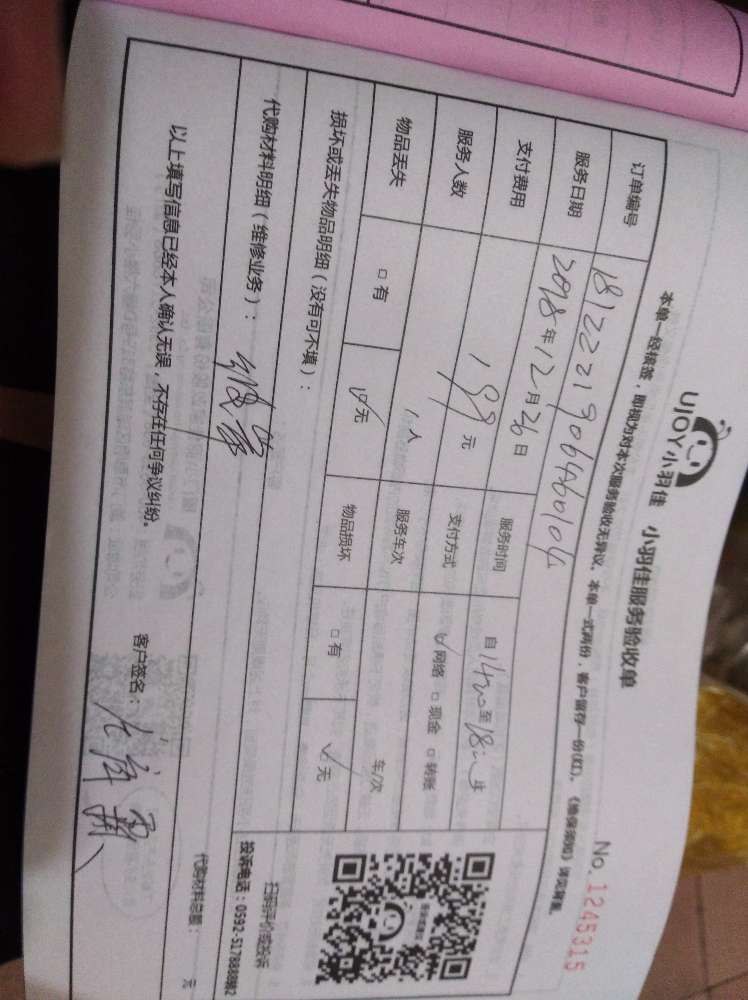 UJOY小羽佳 小羽佳服务验收单
No.1245315
本单一经接签，即视为对本次服务验收无异议。本单一式两份，客户留存一份(红)。《维保须知》详见背面。
订单编号 1812221906460104
服务日期 2018年12月26日 服务时间 自14:00至18:00止
支付费用 199元 支付方式 ☑网络 □现金 □转账
服务人数 1人 服务车次 车/次
物品丢失 □有 ☑无 物品损坏 □有 ☑无
损坏或丢失物品明细（没有可不填）：
代购材料明细（维修业务）：
代购材料总额： 元
以上填写信息已经本人确认无误，不存在任何争议纠纷。
客户签名：
扫码评价或投诉
投诉电话：0592-5178888转2